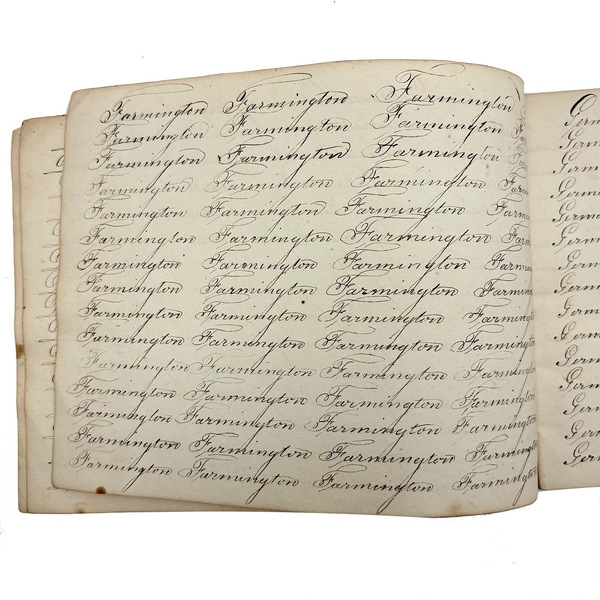 Farmington Farmington Farmington
Farmington Farmington Farmington
Farmington Farmington Farmington
Farmington Farmington Farmington Far
Farmington Farmington Farmington Farm
Farmington Farmington Farmington Farm
Farmington Farmington Farmington Farm
Farmington Farmington Farmington Farmin
Farmington Farmington Farmington Farmin
Farmington Farmington Farmington Farming
Farmington Farmington Farmington Farming
Farmington Farmington Farmington Farmingt
Farmington Farmington Farmington Farmingt
Farmington Farmington Farmington Farming
Farmington Farmington Farmington Farmingt
Germ
Germ
Germ
Germ
Germ
Germ
Germ
Germ
Germ
Germ
Germ
Germ
Ger
Ger
Ger